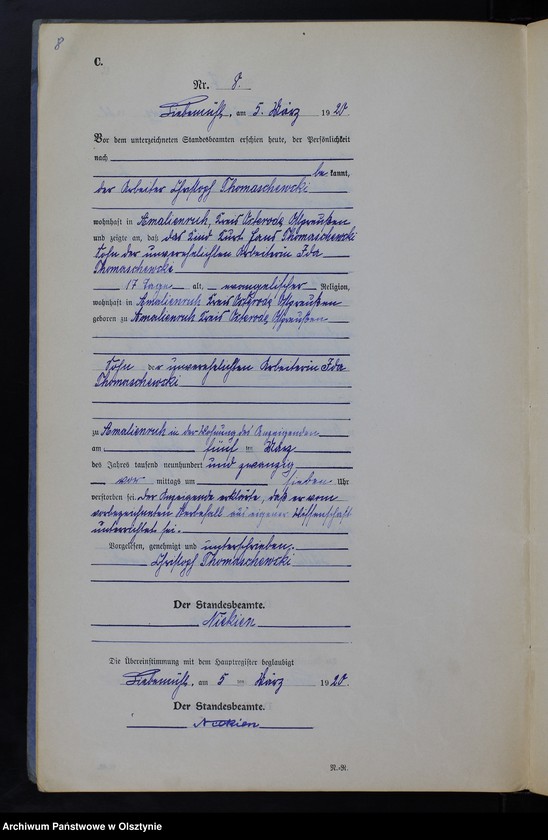 8
C.
Nr. 8.
Liebemühl, am 5. März 1920
Vor dem unterzeichneten Standesbeamten erschien heute, der Persönlichkeit
nach
bekannt,
der Arbeiter Christoph Thomaschewcki
wohnhaft in Amalienruh, Kreis Osterode Ostpreußen
und zeigte an, daß das Kind Kurt Hans Thomaschewcki
Sohn der unverehelichten Arbeiterin Ida
Thomaschewcki
17 Tage alt, evangelischer Religion,
wohnhaft in Amalienruh Kreis Osterode Ostpreußen
geboren zu Amalienruh Kreis Osterode Ostpreußen
Sohn der unverehelichten Arbeiterin Ida
Thomaschewcki
zu Amalienruh in der Wohnung des Anzeigenden
am fünf ten März
des Jahres tausend neunhundert und zwanzig
vor mittags um sieben Uhr
verstorben sei. Der Anzeigende erklärte, daß er vom
vorbezeichneten Sterbefall aus eigener Wissenschaft
unterrichtet sei.
Vorgelesen, genehmigt und unterschrieben.
Christoph Thomaschewcki
Der Standesbeamte.
Niekien
Die Übereinstimmung mit dem Hauptregister beglaubigt
Liebemühl, am 5 ten März 1920.
Der Standesbeamte.
Niekien
N.-R.
Archiwum Państwowe w Olsztynie